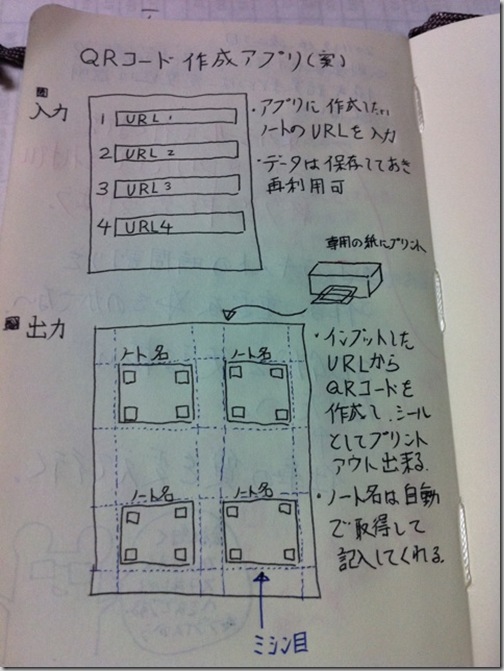 QRコード作成アプリ(案)
入力
1 URL 1
2 URL 2
3 URL 3
4 URL4
・アプリに作成したい
ノートのURLを入力
・データは保存しておき
再利用可
専用の紙にプリント
出力
ノート名 ノート名
ノート名 ノート名
・インプットした
URLから
QRコードを
作成して、シール
としてプリント
アウト出来る.
・ノート名は自動
で取得して
記入してくれる.
ミシン目